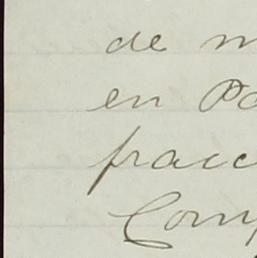 de m
en Pa
fracc
Comp